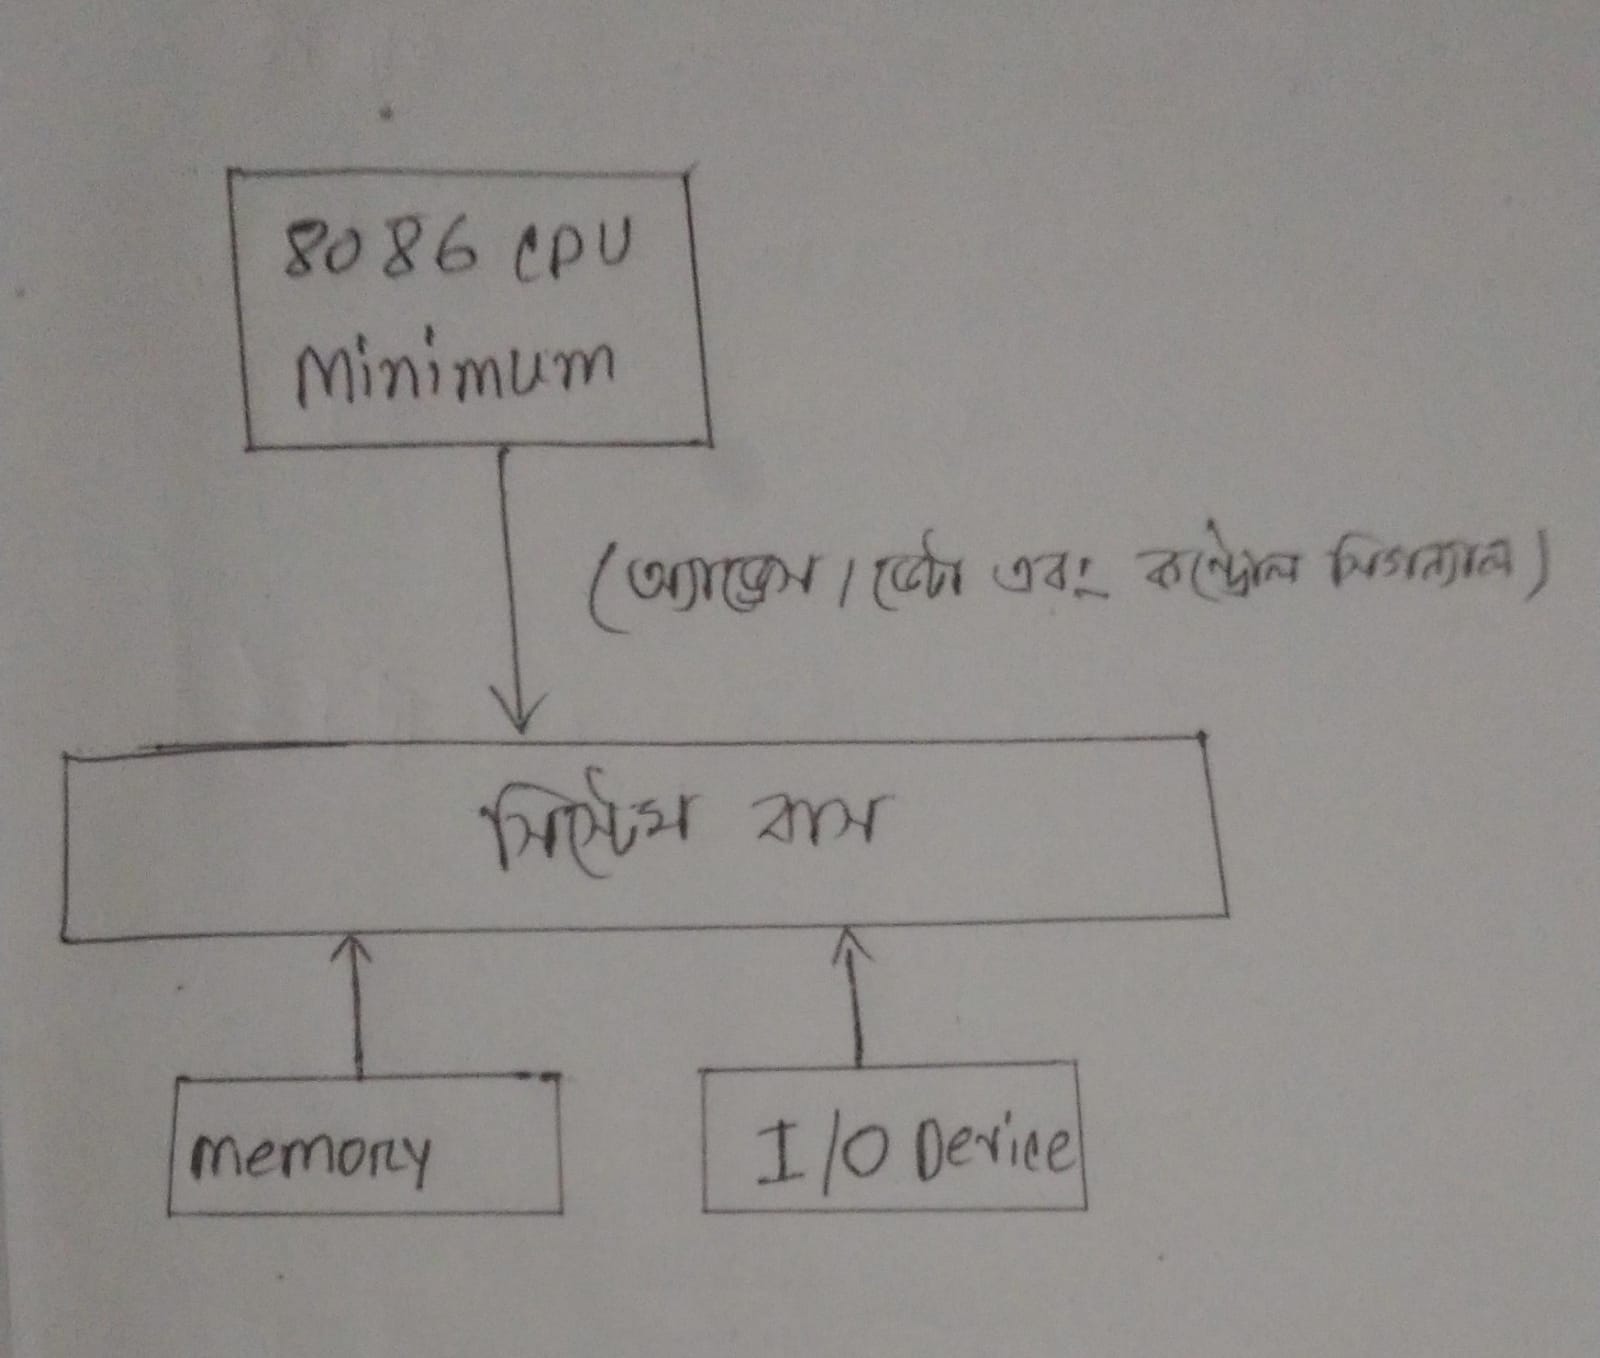 8086 CPU
Minimum
(অ্যাড্রেস / ডেটা এবং কন্ট্রোল সিগন্যাল)
সিস্টেম বাস
memory
I/O Device